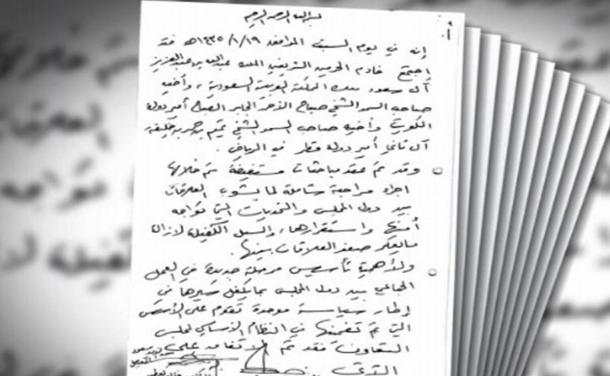 بسم الله الرحمن الرحيم
إنه في يوم السبت الموافق ١٤٣٥/١/١٩هـ فقد
اجتمع خادم الحرمين الشريفين الملك عبدالله بن عبدالعزيز
آل سعود ملك المملكة العربية السعودية، وأخيه
صاحب السمو الشيخ صباح الأحمد الجابر الصباح أمير دولة
الكويت، وأخيه صاحب السمو الشيخ تميم بن حمد بن خليفة
آل ثاني أمير دولة قطر في الرياض.
وقد تم عقد مباحثات مستفيضة تم خلالها
اجراء مراجعة شاملة لما يشوب العلاقات
بين دول المجلس والتحديات التي تواجه
أمنها واستقرارها، والسبل الكفيلة لازالة
مايعكر صفو العلاقات بينها.
ولأهمية تأسيس مرحلة جديدة في العمل
الجماعي بين دول المجلس بما يكفل سيرها في
إطار سياسة موحدة تقوم على الأسس
التي تم تضمينها في النظام الأساسي لمجلس
التعاون فقد تم الاتفاق على